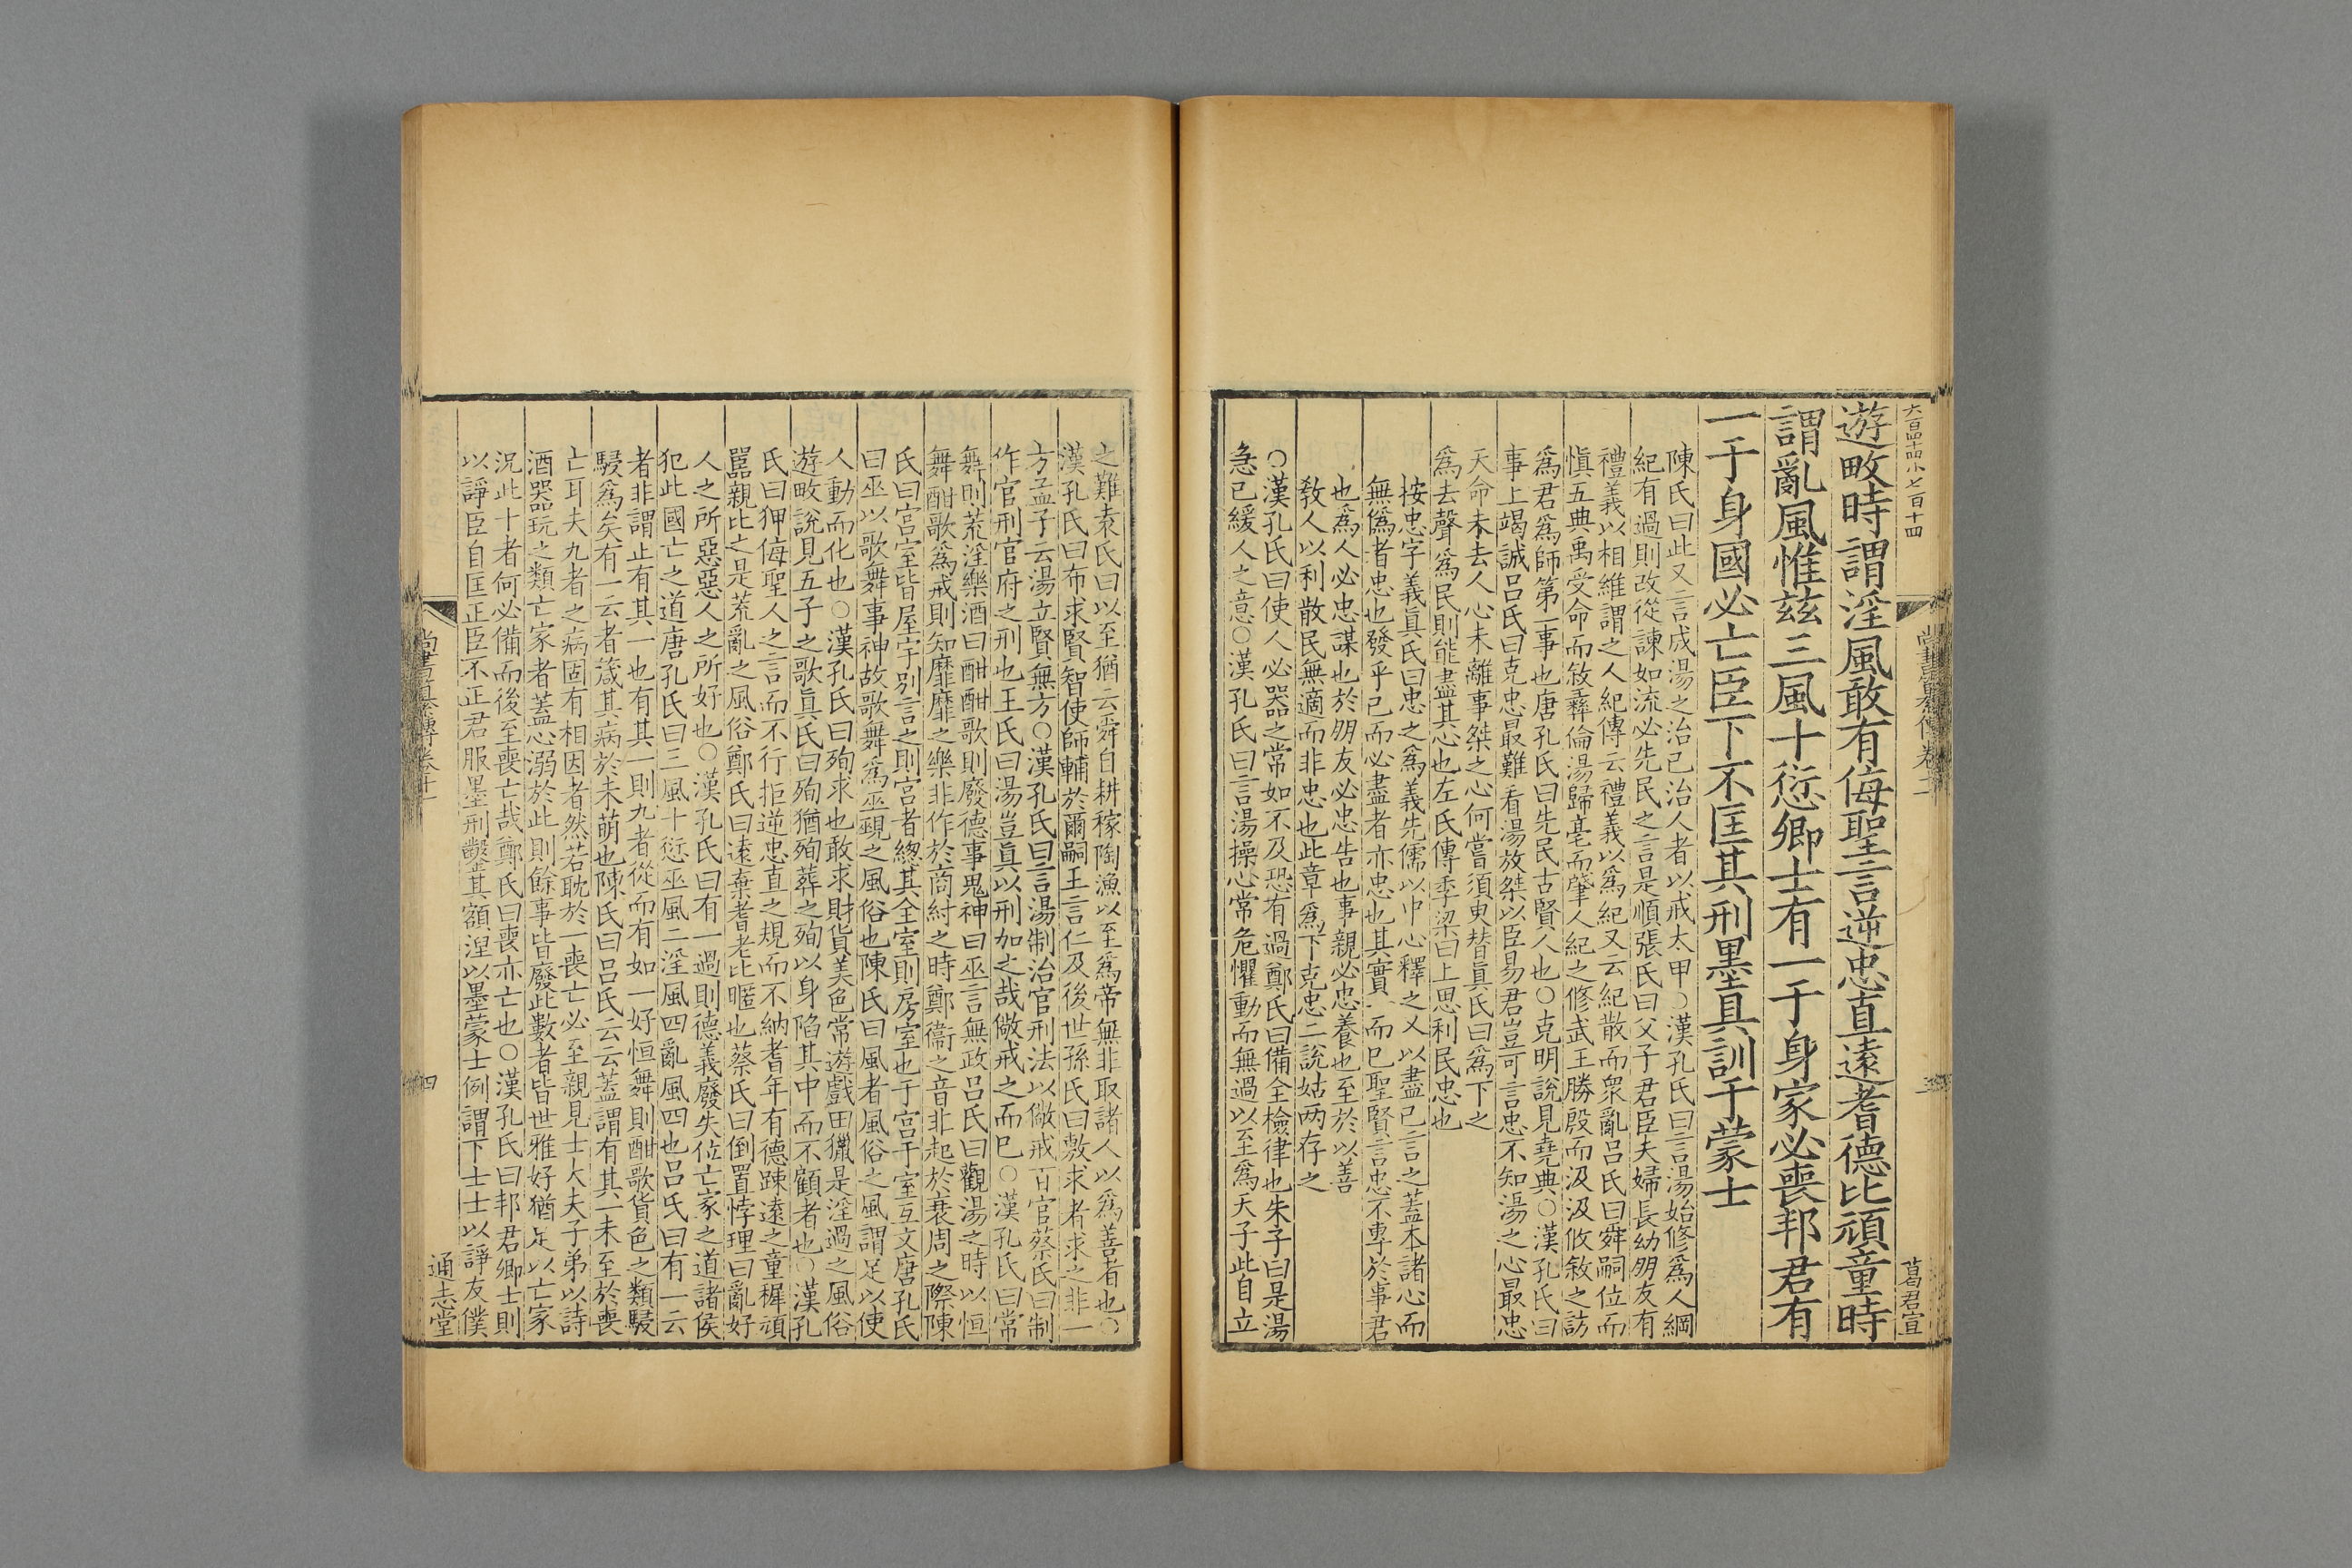 六百四十四小七百十四
尚書纂傳卷十一
三
葛君宣
遊畋時謂淫風敢有侮聖言逆忠直遠耆德比頑童時
謂亂風惟茲三風十愆卿士有一于身家必喪邦君有
一于身國必亡臣下不匡其刑墨具訓于蒙士
陳氏曰此又言成湯之治己治人者以戒太甲○漢孔氏曰言湯始修爲人綱
紀有過則改從諫如流必先民之言是順張氏曰父子君臣夫婦長幼朋友有
禮義以相維謂之人紀傳云禮義以爲紀又云紀散而衆亂呂氏曰舜嗣位而
愼五典禹受命而敘彝倫湯歸亳而肇人紀之修武王勝殷而汲汲攸敘之訪
爲君爲師第一事也唐孔氏曰先民古賢人也○克明說見堯典○漢孔氏曰
事上竭誠呂氏曰克忠最難看湯放桀以臣易君豈可言忠不知湯之心最忠
天命未去人心未離事桀之心何嘗須臾替眞氏曰爲下之
爲去聲爲民則能盡其心也左氏傳季梁曰上思利民忠也
按忠字義眞氏曰忠之爲義先儒以中心釋之又以盡己言之蓋本諸心而
無僞者忠也發乎己而必盡者亦忠也其實一而已聖賢言忠不專於事君
也爲人必忠謀也於朋友必忠告也事親必忠養也至於以善
敎人以利散民無適而非忠也此章爲下克忠二說姑两存之
○漢孔氏曰使人必器之常如不及恐有過鄭氏曰備全檢律也朱子曰是湯
急己緩人之意○漢孔氏曰言湯操心常危懼動而無過以至爲天子此自立
之難袁氏曰以至猶云舜自耕稼陶漁以至爲帝無非取諸人以爲善者也○
漢孔氏曰布求賢智使師輔於爾嗣王言仁及後世孫氏曰敷求者求之非一
方孟子云湯立賢無方○漢孔氏曰言湯制治官刑法以儆戒百官蔡氏曰制
作官刑官府之刑也王氏曰湯豈眞以刑加之哉儆戒之而巳○漢孔氏曰常
舞則荒淫樂酒曰酣酣歌則廢德事鬼神曰巫言無政呂氏曰觀湯之時以恒
舞酣歌爲戒則知靡靡之樂非作於商紂之時鄭衞之音非起於衰周之際陳
氏曰宫室皆屋宇别言之則宫者總其全室則房室也于宫于室互文唐孔氏
曰巫以歌舞事神故歌舞爲巫覡之風俗也陳氏曰風者風俗之風謂足以使
人動而化也○漢孔氏曰殉求也敢求財貨美色常遊戲田獵是淫過之風俗
遊畋說見五子之歌眞氏曰殉猶殉葬之殉以身陷其中而不顧者也○漢孔
氏曰狎侮聖人之言而不行拒逆忠直之規而不納耆年有德踈遠之童穉頑
嚚親比之是荒亂之風俗鄭氏曰遠棄耆老比暱也蔡氏曰倒置悖理曰亂好
人之所惡惡人之所好也○漢孔氏曰有一過則德義廢失位亡家之道諸侯
犯此國亡之道唐孔氏曰三風十愆巫風二淫風四亂風四也呂氏曰有一云
者非謂止有其一也有其一則九者從而有如一好恒舞則酣歌貨色之類駸
駸爲矣有一云者箴其病於未萌也陳氏曰呂氏云云蓋謂有其一未至於喪
亡耳夫九者之病固有相因者然若耽於一喪亡必至親見士大夫子弟以詩
酒器玩之類亡家者蓋心溺於此則餘事皆廢此數者皆世雅好猶足以亡家
况此十者何必備而後至喪亡哉鄭氏曰喪亦亡也○漢孔氏曰邦君卿士則
以諍臣自匡正臣不正君服墨刑鑿其額涅以墨蒙士例謂下士士以諍友僕
尚書纂傳卷十一
四
通志堂